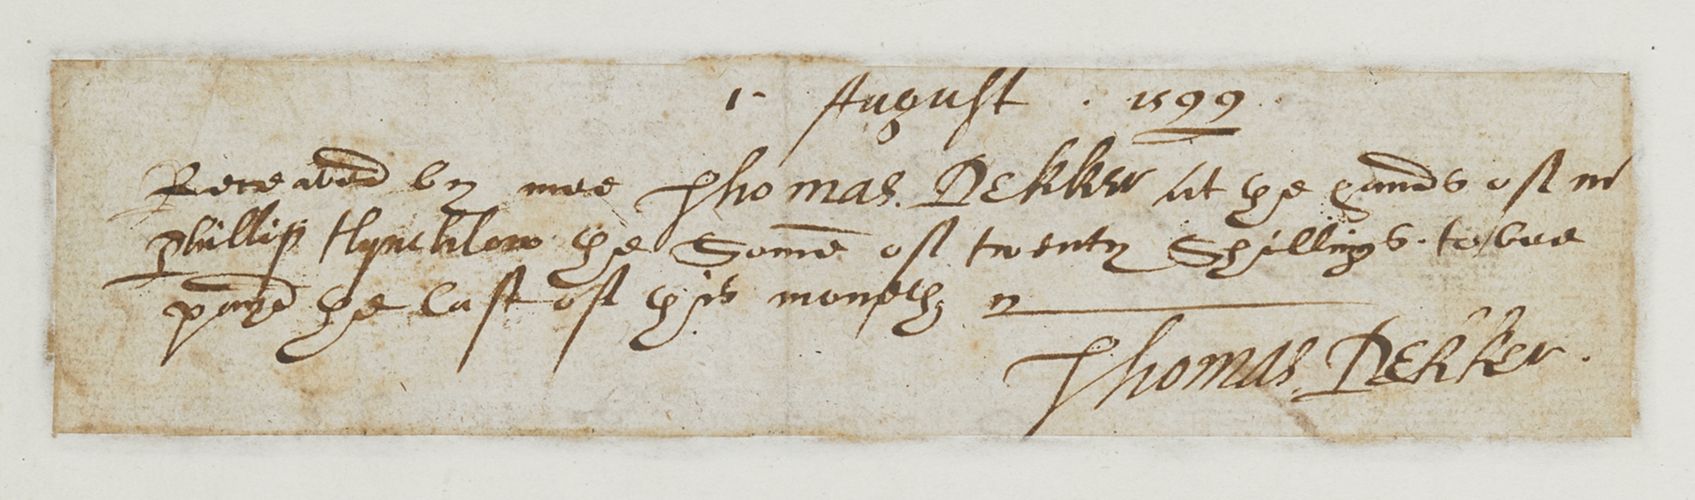 1 August . 1599
Receaued by mee Thomas Dekker at the hands off mr
Phillip Hynchlow the Some off twenty Shillings. to bee
payd the last off this moneth
Thomas Dekker.